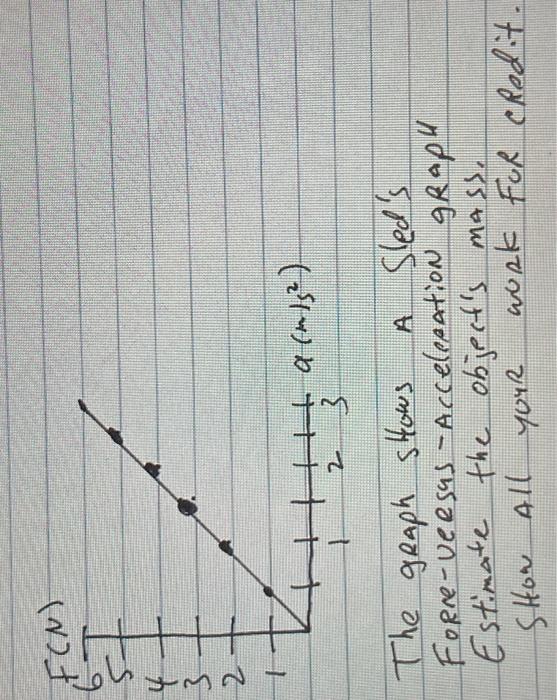 F(N)
6
5
4
3
2
1
1 2 3 a (m/s²)
The graph shows A Sled's
Force-versus-Acceleration graph
Estimate the object's mass.
Show All your work For credit.